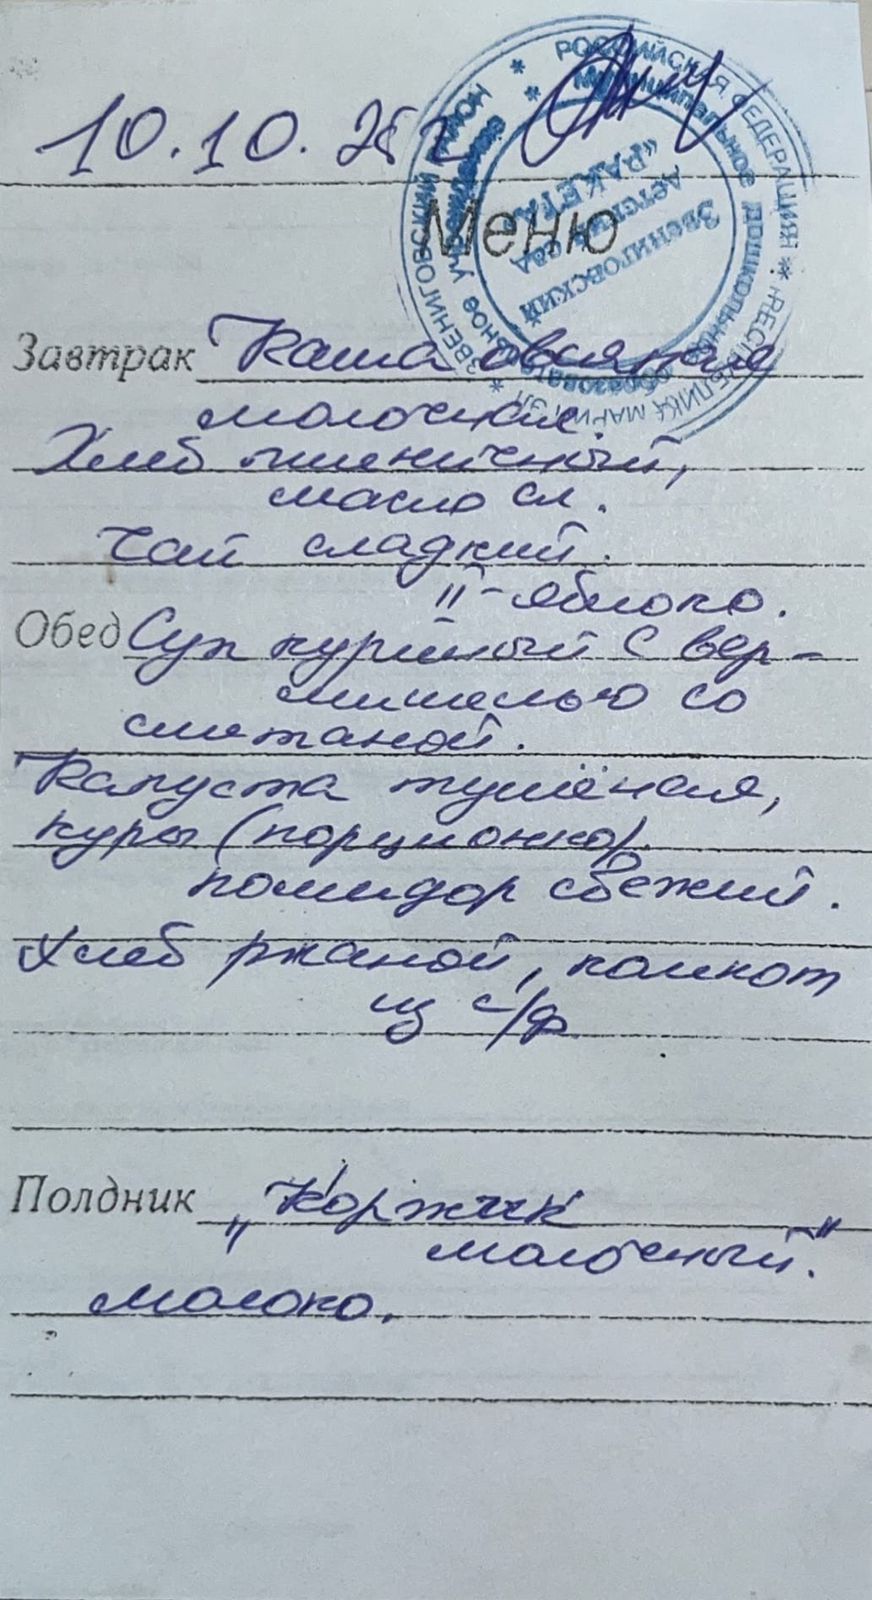 10.10.25 г.
РОССИЙСКАЯ ФЕДЕРАЦИЯ * РЕСПУБЛИКА МАРИЙ ЭЛ * ЗВЕНИГОВСКИЙ РАЙОН *
Муниципальное дошкольное образовательное учреждение
Звениговский
детский сад
«РАКЕТА»
Меню
Завтрак Каша овсяная
молочная.
Хлеб пшеничный,
масло сл.
Чай сладкий.
II - яблоко.
Обед Суп куриный с вер-
мишелью со
сметаной.
Капуста тушёная,
куры (порционно).
помидор свежий.
Хлеб ржаной, компот
из с/ф
Полдник „Коржик
молочный."
молоко.